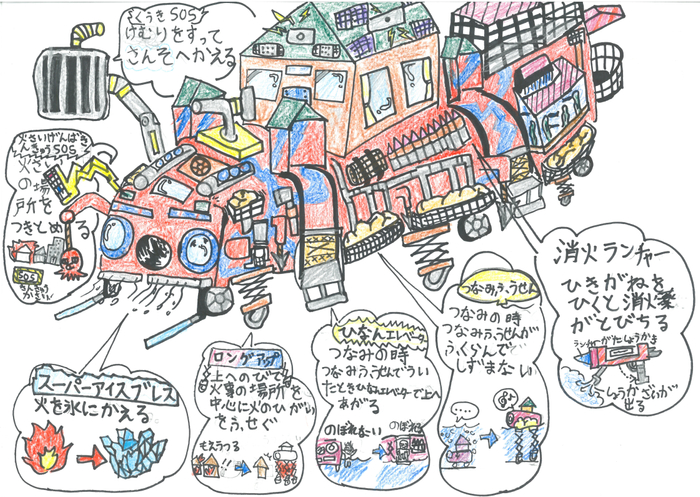 くうきSOS
けむりをすって
さんそへかえる
火さいげんばき
んきゅうSOS
火さい
の場
所を
つきとめる
SOS
きんきゅう
かさい
スーパーアイスブレス
火を氷にかえる
ロングアップ
上へのびて
火事の場所を
中心に火のひがり
をふせぐ
もえうつる
ひなんエレベーター
つなみの時
つなみふうせんでうい
たときひなんエレベーターで上へ
あがる
のぼれない
のぼれる
つなみふうせん
つなみの時
つなみふうせんが
ふくらんで
しずまない
消火ランチャー
ひきがねを
ひくと消火薬
がとびちる
ランチャーがたしょうかき
しょうかざいが
出る